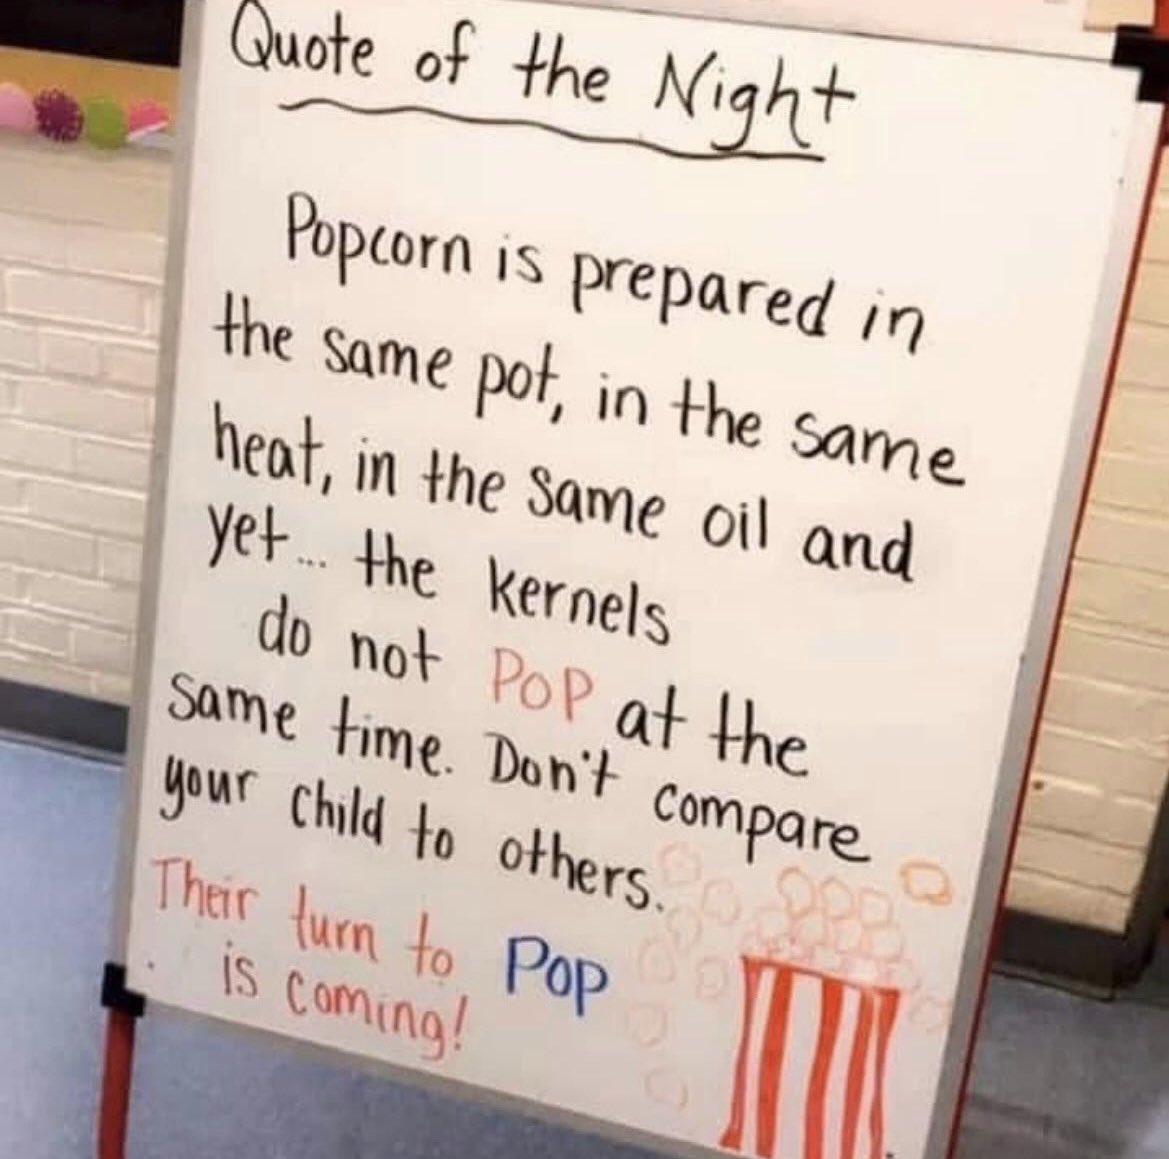 Quote of the Night
Popcorn is prepared in
the same pot, in the same
heat, in the same oil and
yet... the kernels
do not POP at the
same time. Don't compare
your child to others.
Their turn to Pop
is coming!